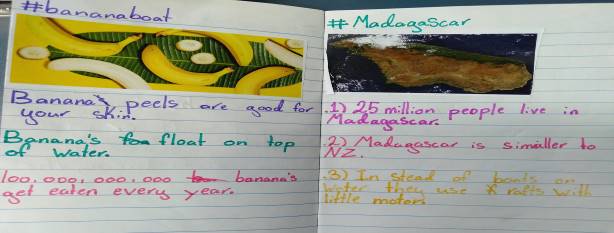 #bananaboat
Banana's peels are good for
your skin.
Banana's float on top
of water.
100.000,000.000 banana's
get eaten every year.
# Madagascar
.1) 25 million people live in
Madagascar.
.2) Madagascar is simailer to
NZ.
.3) In stead of boats on
water they use rafts with
little moters